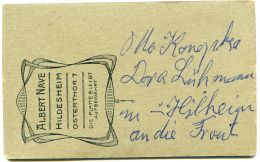 ALBERT NAVE
HILDESHEIM
OSTERTHOR 7
DIE PLATTE BLEIBT
AUFBEWAHRT
Otto
Dora Lühmann
in
an die Front